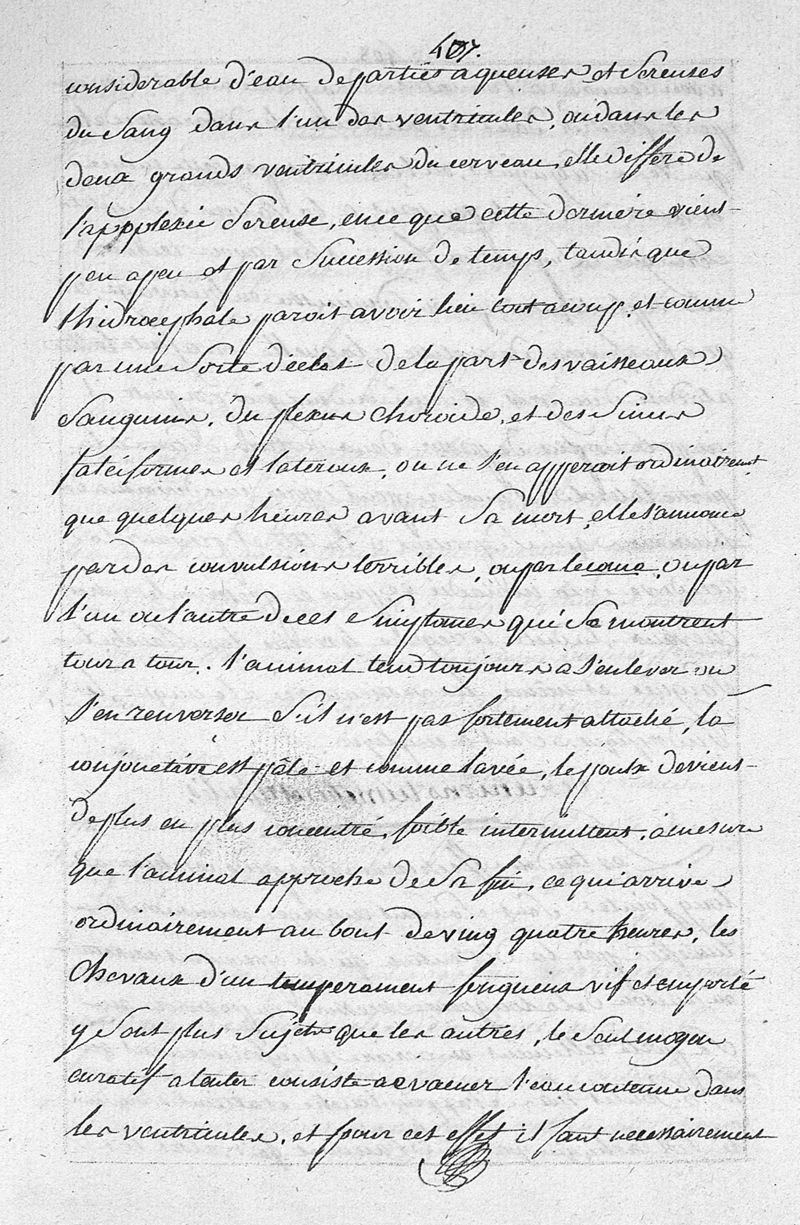 407.
considerable d'eau de parties aqueuses et Sereuses
du Sang dans l'un des ventricules, ou dans les
deux grands ventricules du cerveau, elle differe de
l'appoplexie Sereuse, en ce que cette derniere vient
peu a peu et par Succession de temps, tandis que
l'hidrocephale paroit avoir lieu tout a coup, et comme
par une Sorte d'eclat de la part des vaisseaux
Sanguins, du plexus choroide, et des Sinus
falciformes et lateraux, on ne s'en apperçoit ordinairement
que quelques heures avant Sa mort, elle s'annonce
par des convulsions terribles, ou par le coma, ou par
l'un ou l'autre de ces Simptomes qui Se montrent
tour a tour. l'animal tend toujours a s'enlever ou
s'en renverser S'il n'est pas fortement attaché, la
conjonctive est pâle et comme lavée, le poulx devient
de plus en plus concentré, foible intermittent, a mesure
que l'animal approche de Sa fin, ce qui arrive
ordinairement au bout de ving quatre heures, les
Chevaux d'un temperament fougueux vif et emporté
y Sont plus Sujets que les autres, le Seul moyen
curatif a tenter consiste a evacuer l'eau contenue dans
les ventricules, et pour cet effet il faut necessairement